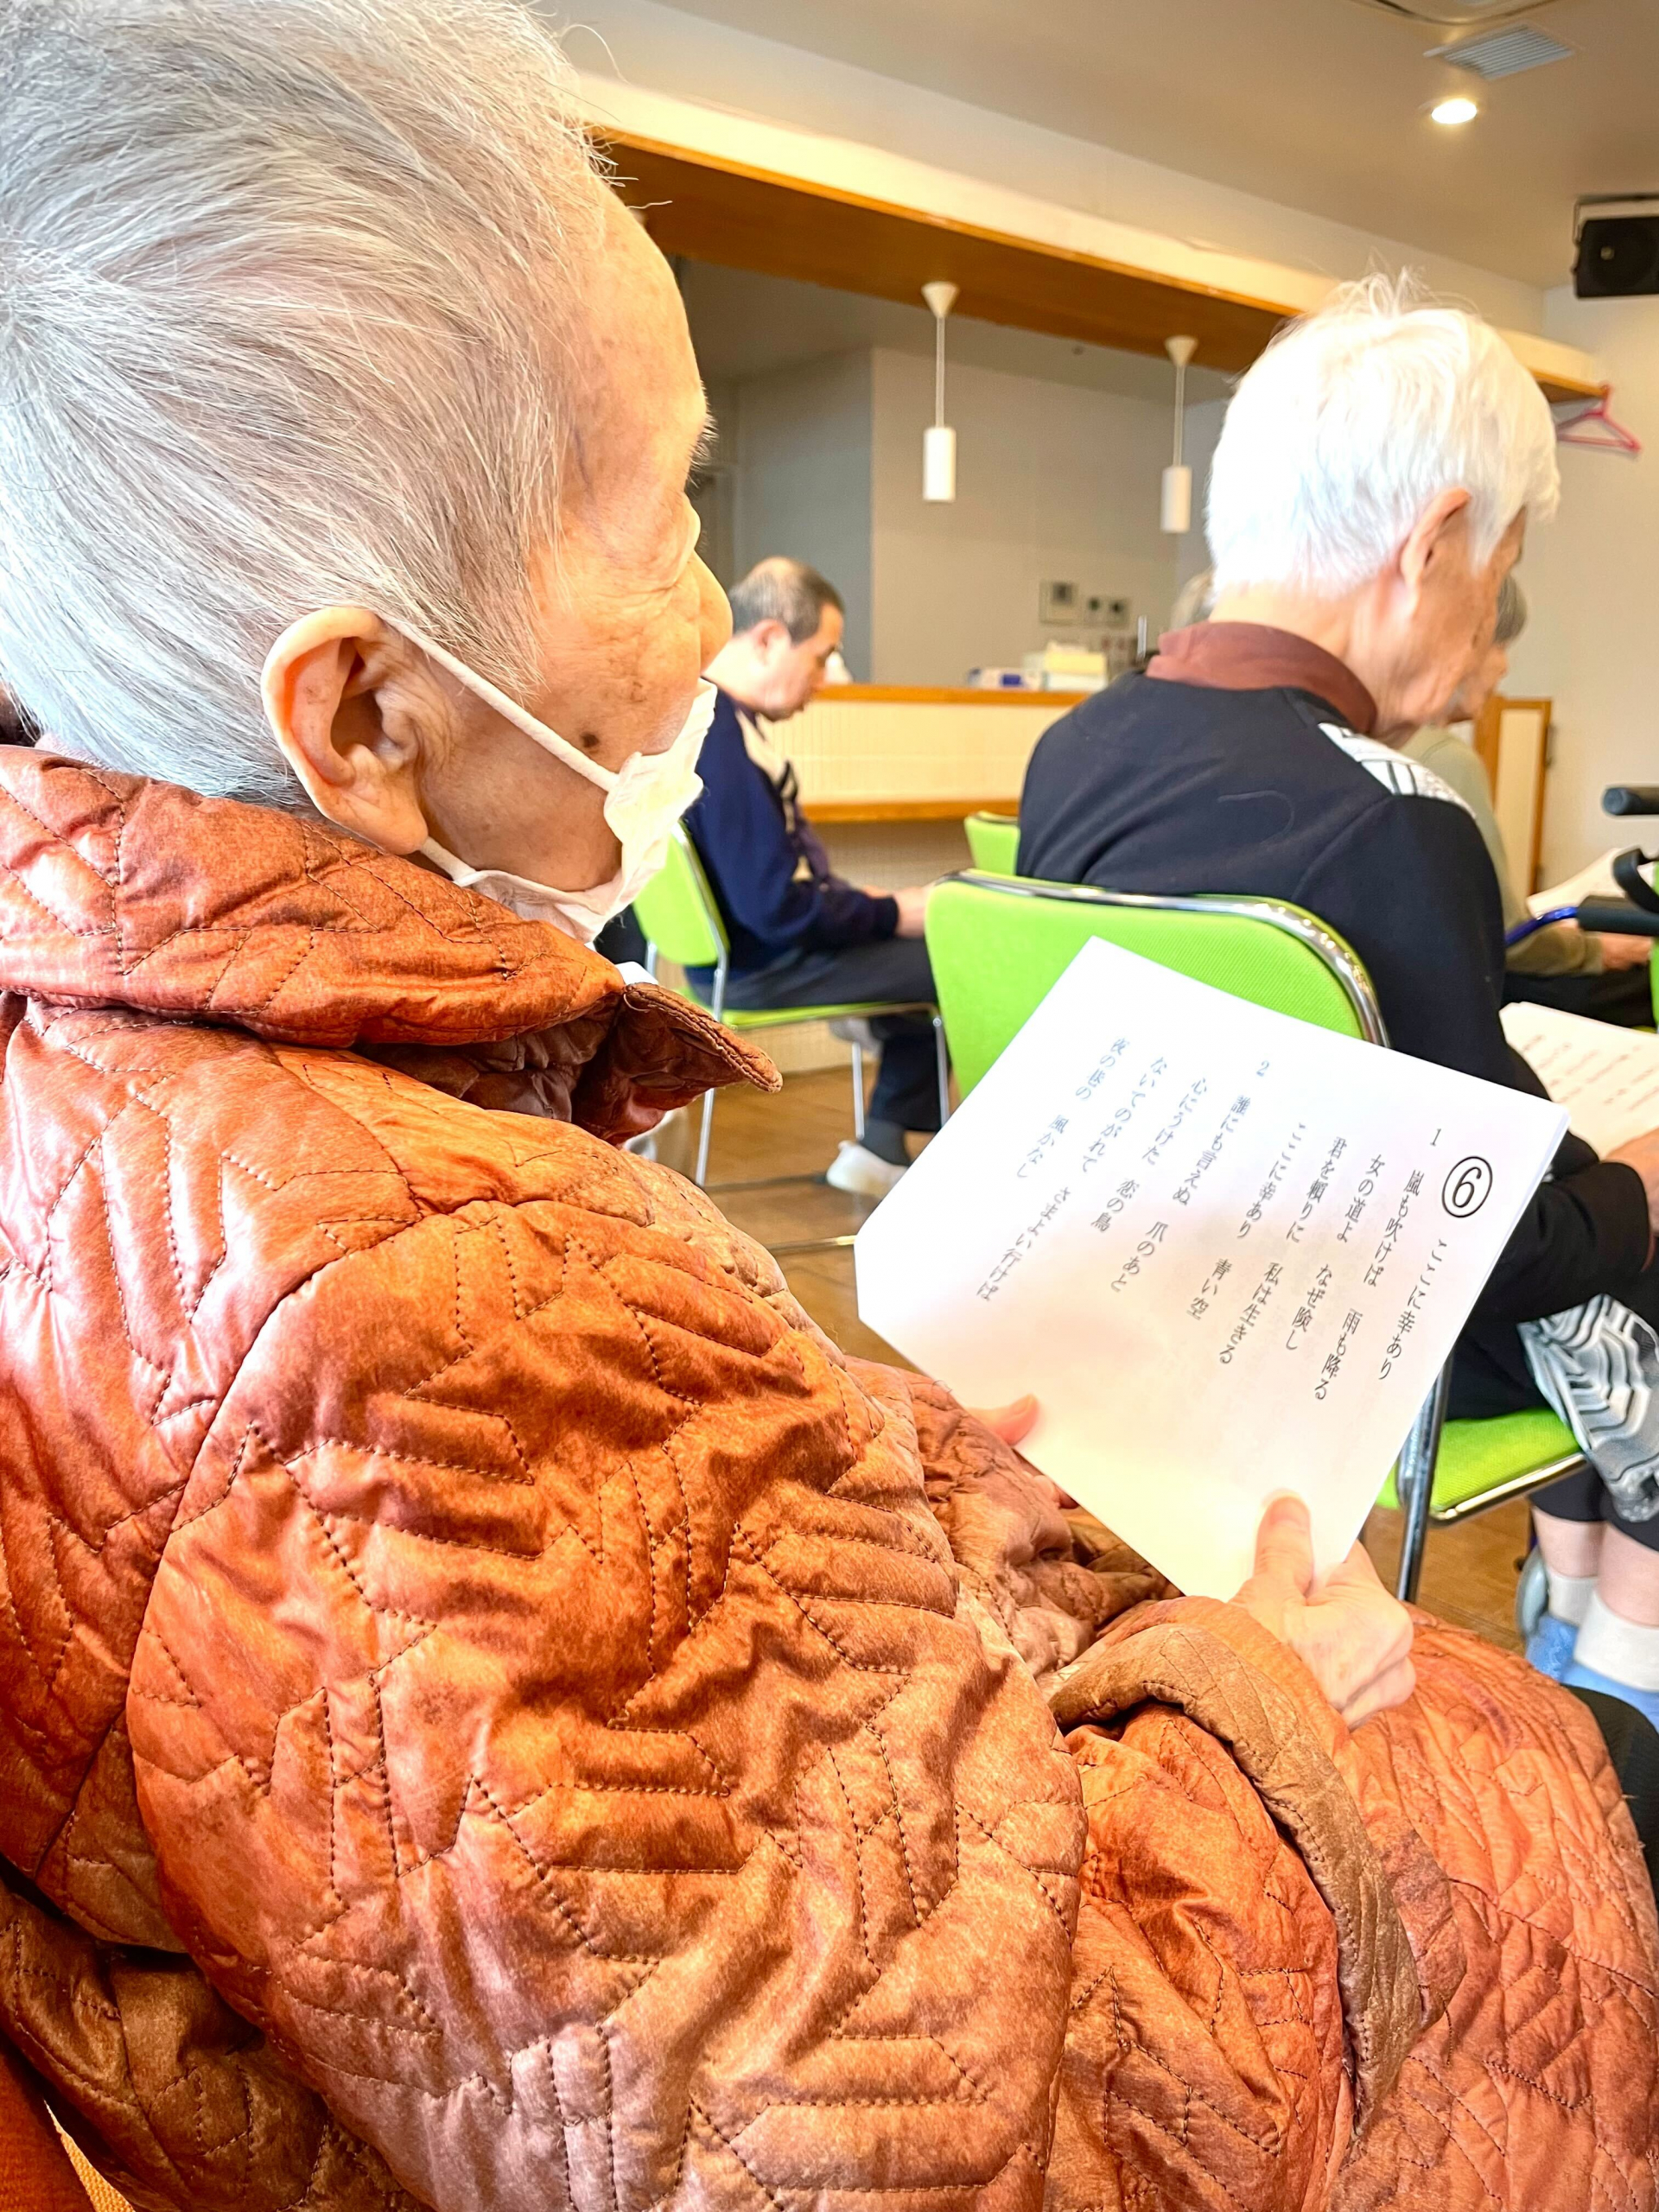 ⑥ ここに幸あり
1 嵐も吹けば 雨も降る
女の道よ なぜ険し
君を頼りに 私は生きる
ここに幸あり 青い空
2 誰にも言えぬ 爪のあと
心にうけた 恋の鳥
ないてのがれて さまよい行けば
夜の巷の 風かなし